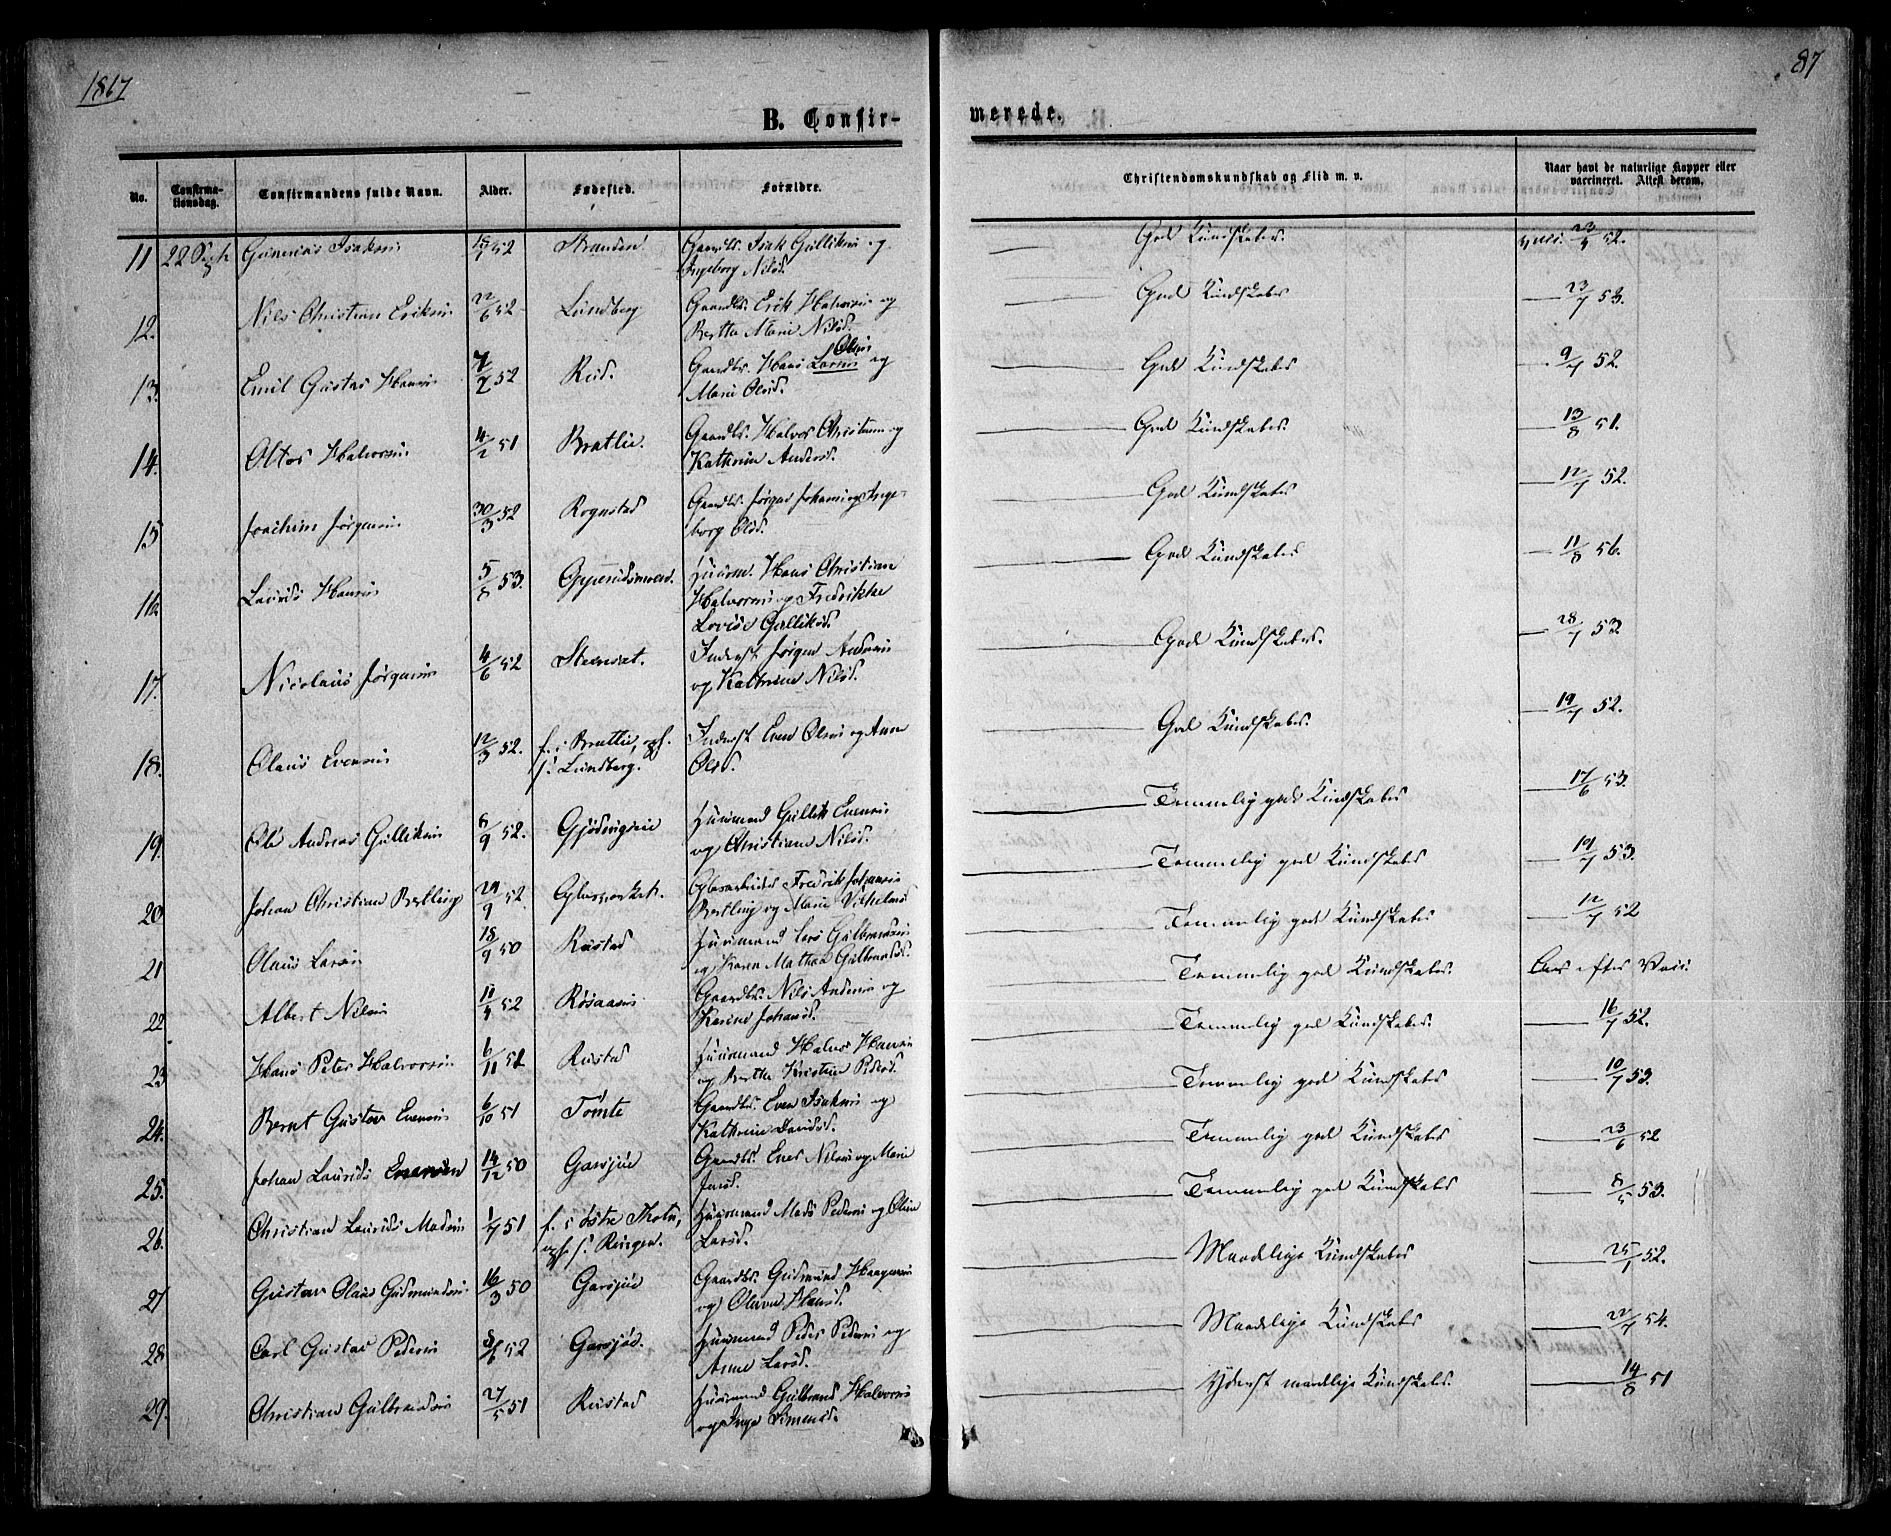 1867
87
B. Confir-
merede.
No.
Confirma-
tionsdag.
Confirmandens fulde Navn.
Alder.
Fødested.
Forældre.
Christendomskundskab og Flid m. v.
Naar havt de naturlige Kopper eller
vaccineret. Attest derom.
11 22 Sept Isaksen 52 Stranden Gaardbr. Isak Gulliksen og God Kundskaber. 52.
Ingeborg Nilsd.
12. Nils Christian Eriksen 22/6 52 Lundberg Gaardbr. Erik Halvorsen og God Kundskaber 23/7 53.
Berthe Marie Nilsd.
Olsen
13. Emil Gustav Hansen 52 Rud. Gaardbr. Hans Larsen og God Kundskaber 9/7 52.
Marie Olsd.
14. Halvorsen 4/2 51 Bratlie. Gaardbr. Halvor Christensen og God Kundskaber 13/8 51.
Kathrine Andersd.
15 Joachim Jørgensen 30/3 52 Rognstad Gaardbr. Jørgen Johansen og Inge- God Kundskaber 12/7 52.
borg Olsd.
16. Laurits Hansen 5/8 53. Huusm. Hans Christian God Kundskaber 11/8 56.
Halvorsen og Fredrikke
Lovise Gulliksd.
17. Nicolaus Jørgensen 4/6 52 Inderst Jørgen Andersen God Kundskaber. 28/7 53
og Kathrine Nilsd.
18. Olaus Evensen 12/3 52. f. i Bratlie, opf. Inderst Even Olsen og Anne God Kundskaber. 19/7 52.
i Lundberg. Olsd.
19. Ole Andreas Gulliksen 8/9 52. Huusmand Gullik Evensen Temmelig god Kundskaber 17/6 53.
og Christiane Nilsd.
20 Johan Christian Bertling 29/9 52. Glasværket. Glasarbeider Fredrik Johansen Temmelig god Kundskaber 19/7 53.
Bertling og Marie Vilhelmsd
21 Olaus Larsen 18/9 50 Rustad Huusmand Lars Gulbrandsen Temmelig god Kundskaber 12/7 52
og Karen Mathea Gulbrandsd.
22 Albert Nilsen 52 Røsaasen Gaardbr. Nils Andersen og Temmelig god Kundskaber. Ar efter Vacc.
Karine Johansd.
23 Hans Peter Halvorsen 6/11 51 Rustad Huusmand Halvor Hansen Temmelig god Kundskaber. 16/7 52.
og Berthe Kristine Pedersd.
24. Bernt Gustav Evensen 6/10 51 Tømte Gaardbr. Even Isaksen og Temmelig god Kundskaber. 10/7 53.
Kathrine Davidsd.
25. Johan Laurits Evensen 14/12 50 Garsjøe Gaardbr. Even Nilsen og Marie Temmelig god Kundskaber 23/6 52
Jensd.
26. Christian Laurits Madsen 1/7 51 f. i Østre Thoten, Huusmand Mads Pedersen og Oline Temmelig god Kundskaber 8/5 53.
opf. i Ringen. Larsd.
27 Gustav Olaus Gudmundsen 16/3 50 Garsjøe Gaardbr. Gudmund Haagensen Maadelige Kundskaber 25/1 52.
og Olava Hansd.
28 Carl Gustav Pedersen 52 Garsjøe. Huusmand Peder Pedersen og Maadelige Kundskaber 22/7 54.
Anne Larsd.
29. Christian Gulbrandsen 27/5 51 Rustad Huusmand Gulbrand Halvorsen Yderst maadelige Kundskaber. 14/8 51
og Inge Simensd.